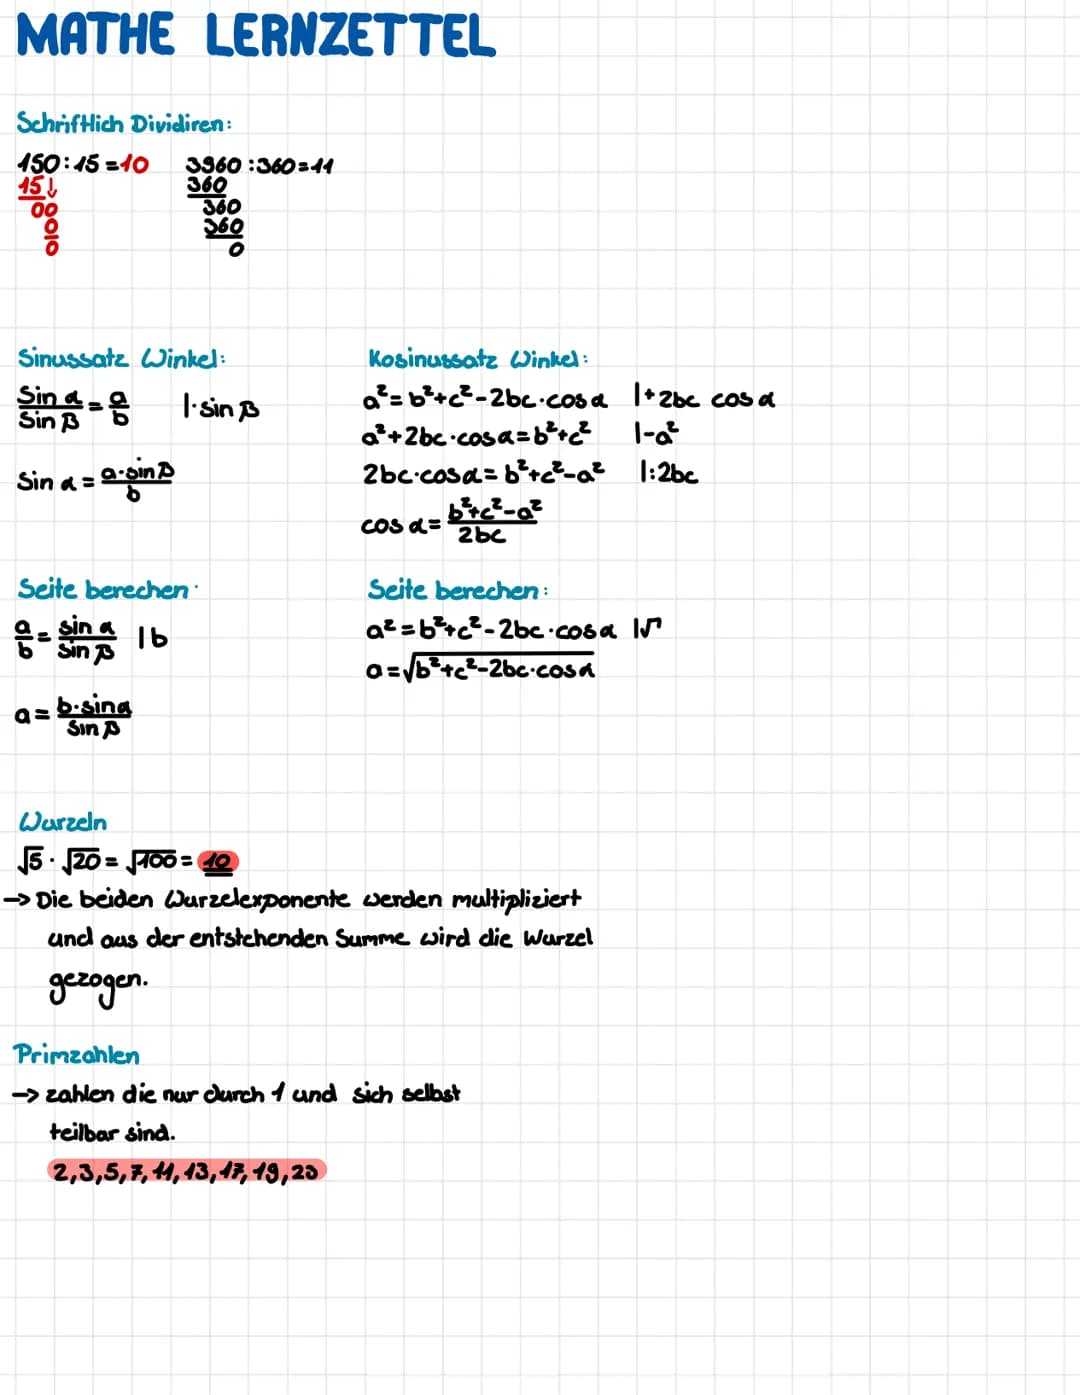 MATHE LERNZETTEL
Schriftlich Dividiren:
150:15=10
15↓
00
0
0
3960:360=11
360
360
360
0
Sinussatz Winkel:
Sin α / Sin β = a / b |·sin β
Sin α = a·sin β / b
Kosinussatz Winkel:
a²=b²+c²-2bc·cos α |+2bc cos α
a²+2bc·cos α=b²+c² |-a²
2bc·cos α=b²+c²-a² |:2bc
cos α= b²+c²-a² / 2bc
Seite berechen:
a / b = sin α / sin β |b
a = b·sin α / Sin β
Seite berechen:
a²=b²+c²-2bc·cos α |√
a=√b²+c²-2bc·cos α
Wurzeln
√5 · √20 = √100 = 10
→ Die beiden Wurzelexponente werden multipliziert
und aus der entstehenden Summe wird die Wurzel
gezogen.
Primzahlen
→ zahlen die nur durch 1 und sich selbst
teilbar sind.
2,3,5,7,11,13,17,19,23